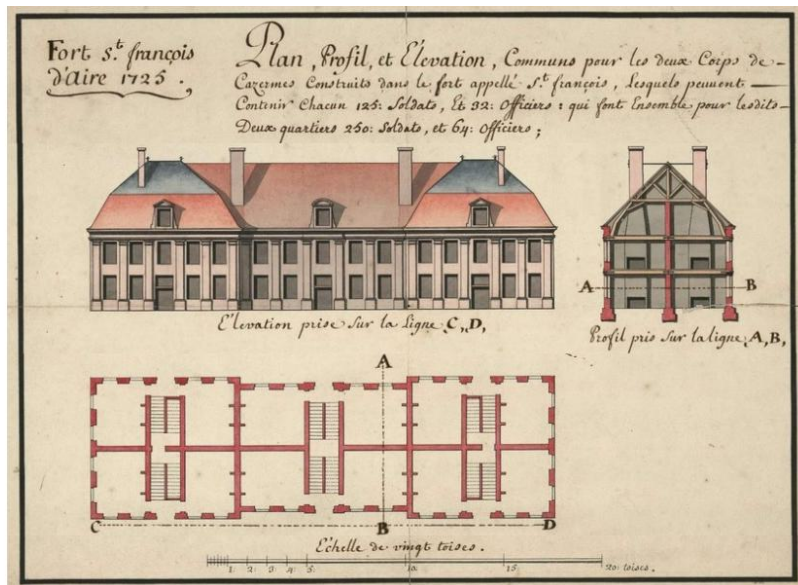 Fort s.t françois
d'aire 1725.
Plan, Profil, et Elevation, Communs pour les deux Corps de
Cazermes Construits dans le fort appellé s.t françois, Lesquels peuvent
Contenir Chacun 125: Soldats, Et 32: Officiers: qui font Ensemble pour lesdits
Deux quartiers 250: Soldats, et 64: Officiers;
A
B
Elevation prise sur la Ligne C,,D,
Profil pris sur la ligne A,B,
A
C
B
D
Echelle de vingt toises.
1. 2. 3. 4. 5. 10. 15. 20 toises.